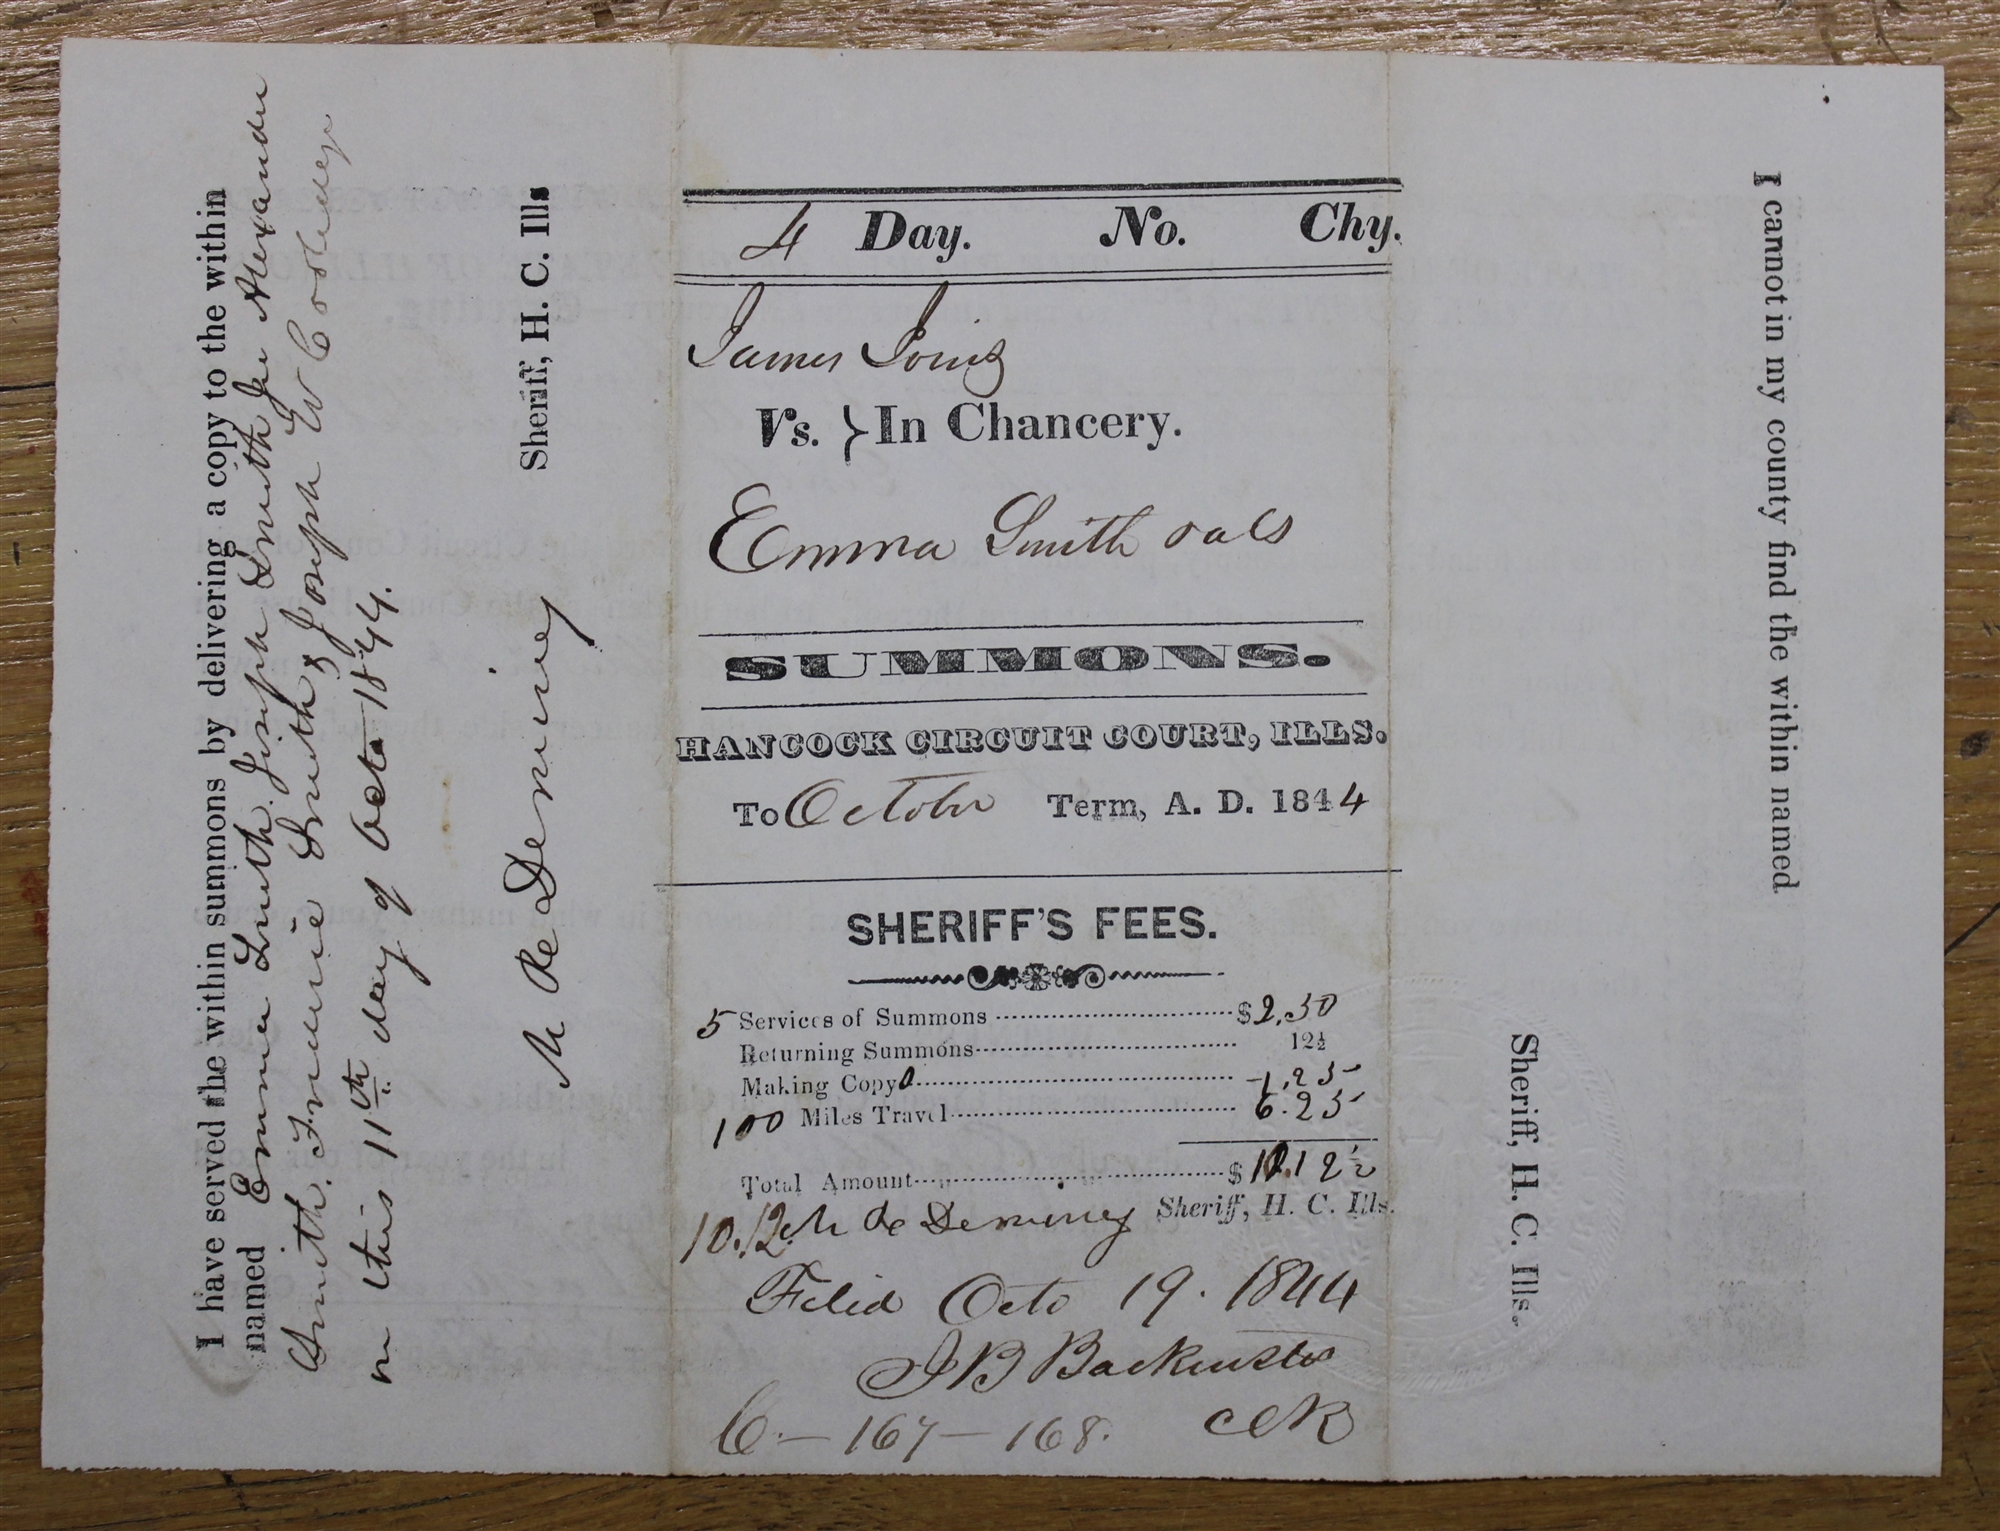 I have served the within summons by delivering a copy to the within
named Emma Smith. Joseph Smith Jr Alexander
Smith. Fredrric Smith, & Joseph W Coolidge
on this 11th day of Octo 1844.
M R Deminey
Sheriff, H. C. Ills
4 Day. No. Chy.
James
Vs. } In Chancery.
Emma Smith et als
SUMMONS.
HANCOCK CIRCUIT COURT, ILLS.
To October Term, A. D. 1844
SHERIFF'S FEES.
5 Services of Summons $2.50
Returning Summons 12½
Making Copy 1.25
100 Miles Travel 6.25
Total Amount $10.12½
10.12 M R Deminey Sheriff, H. C. Ills.
Filed Octo 19. 1844
J B Backenstos
Clk
C - 167 - 168.
I cannot in my county find the within named
Sheriff, H. C. Ills.